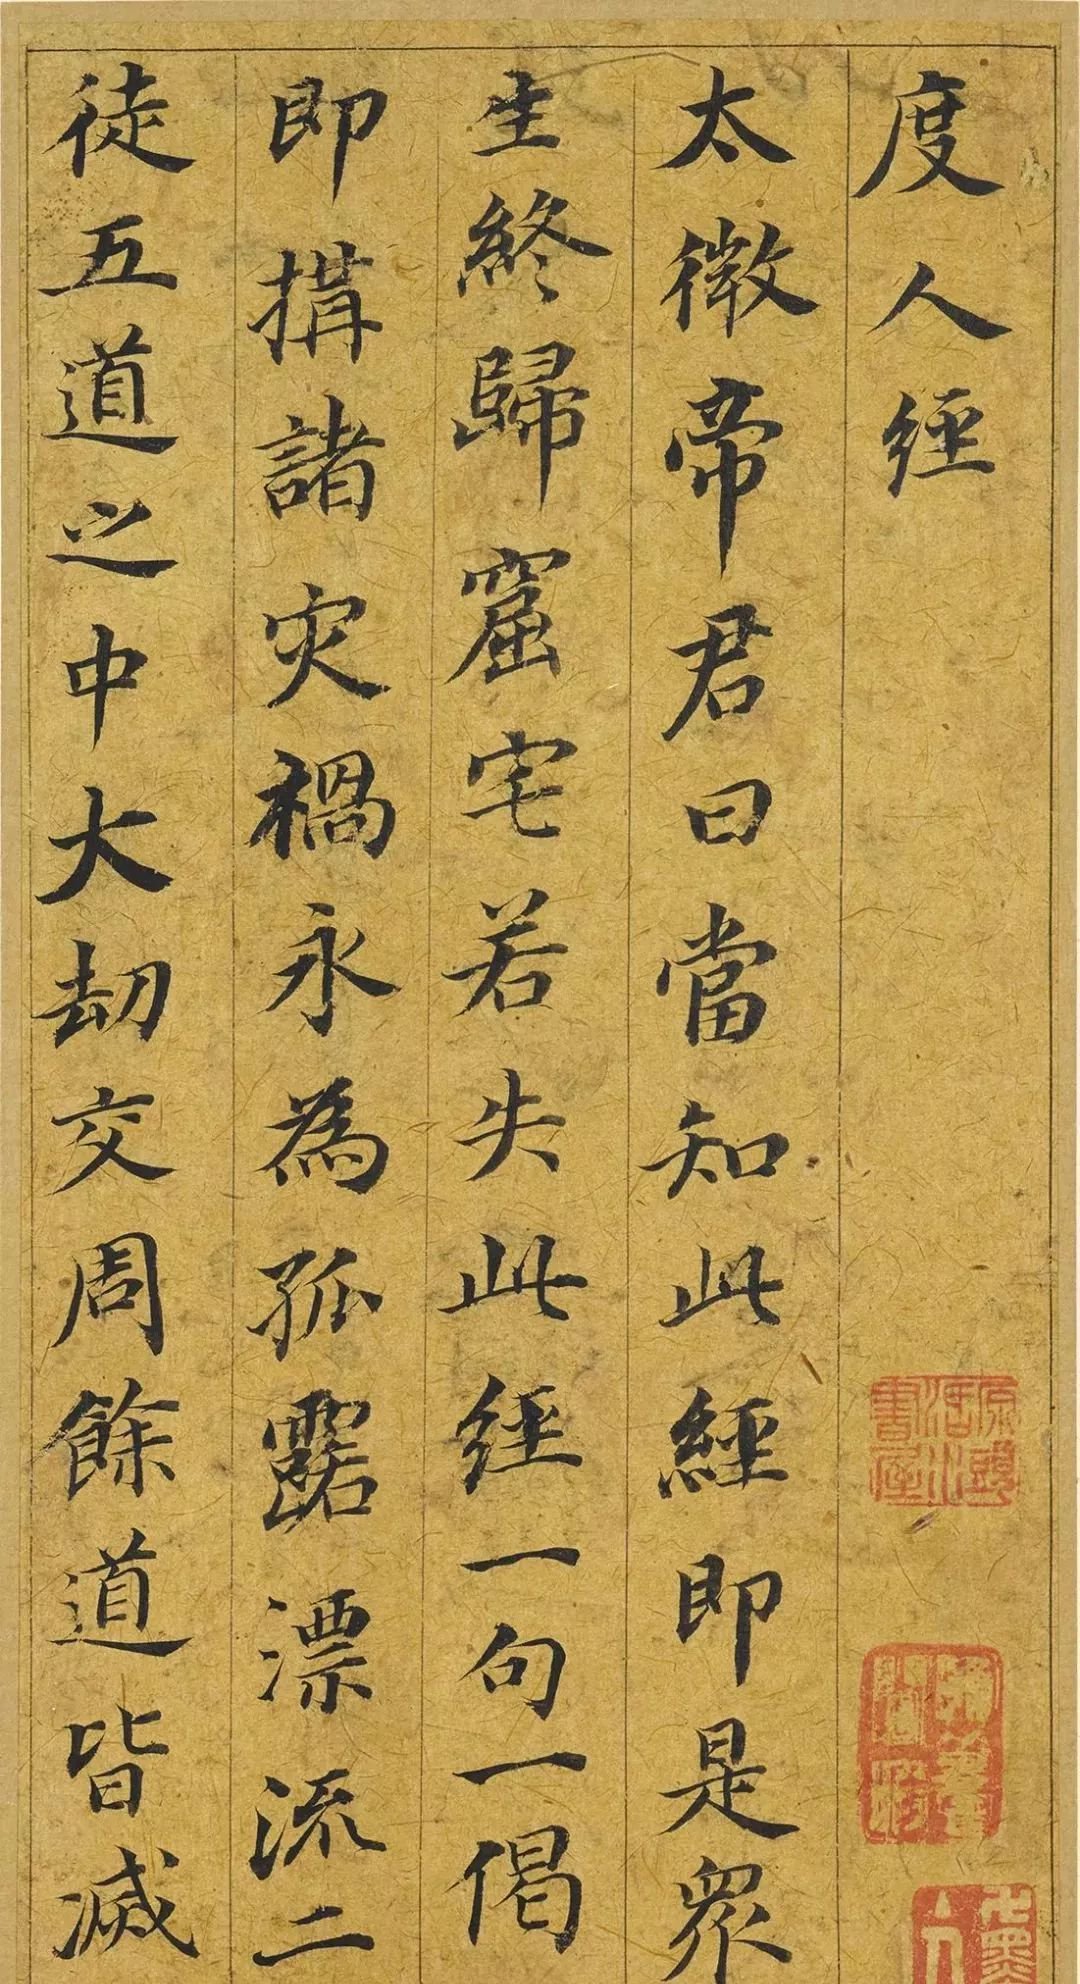 度人經
太微帝君曰當知此經即是眾
生終歸窟宅若失此經一句一偈
即搆諸灾禍永為孤露漂流二
徒五道之中大劫交周餘道皆滅